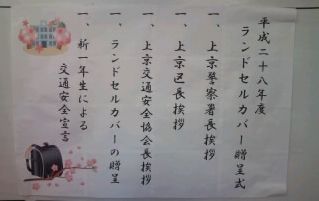 平成二十八年度
ランドセルカバー贈呈式
一、上京警察署長挨拶
一、上京区長挨拶
一、上京交通安全協会長挨拶
一、ランドセルカバーの贈呈
一、新一年生による
交通安全宣言